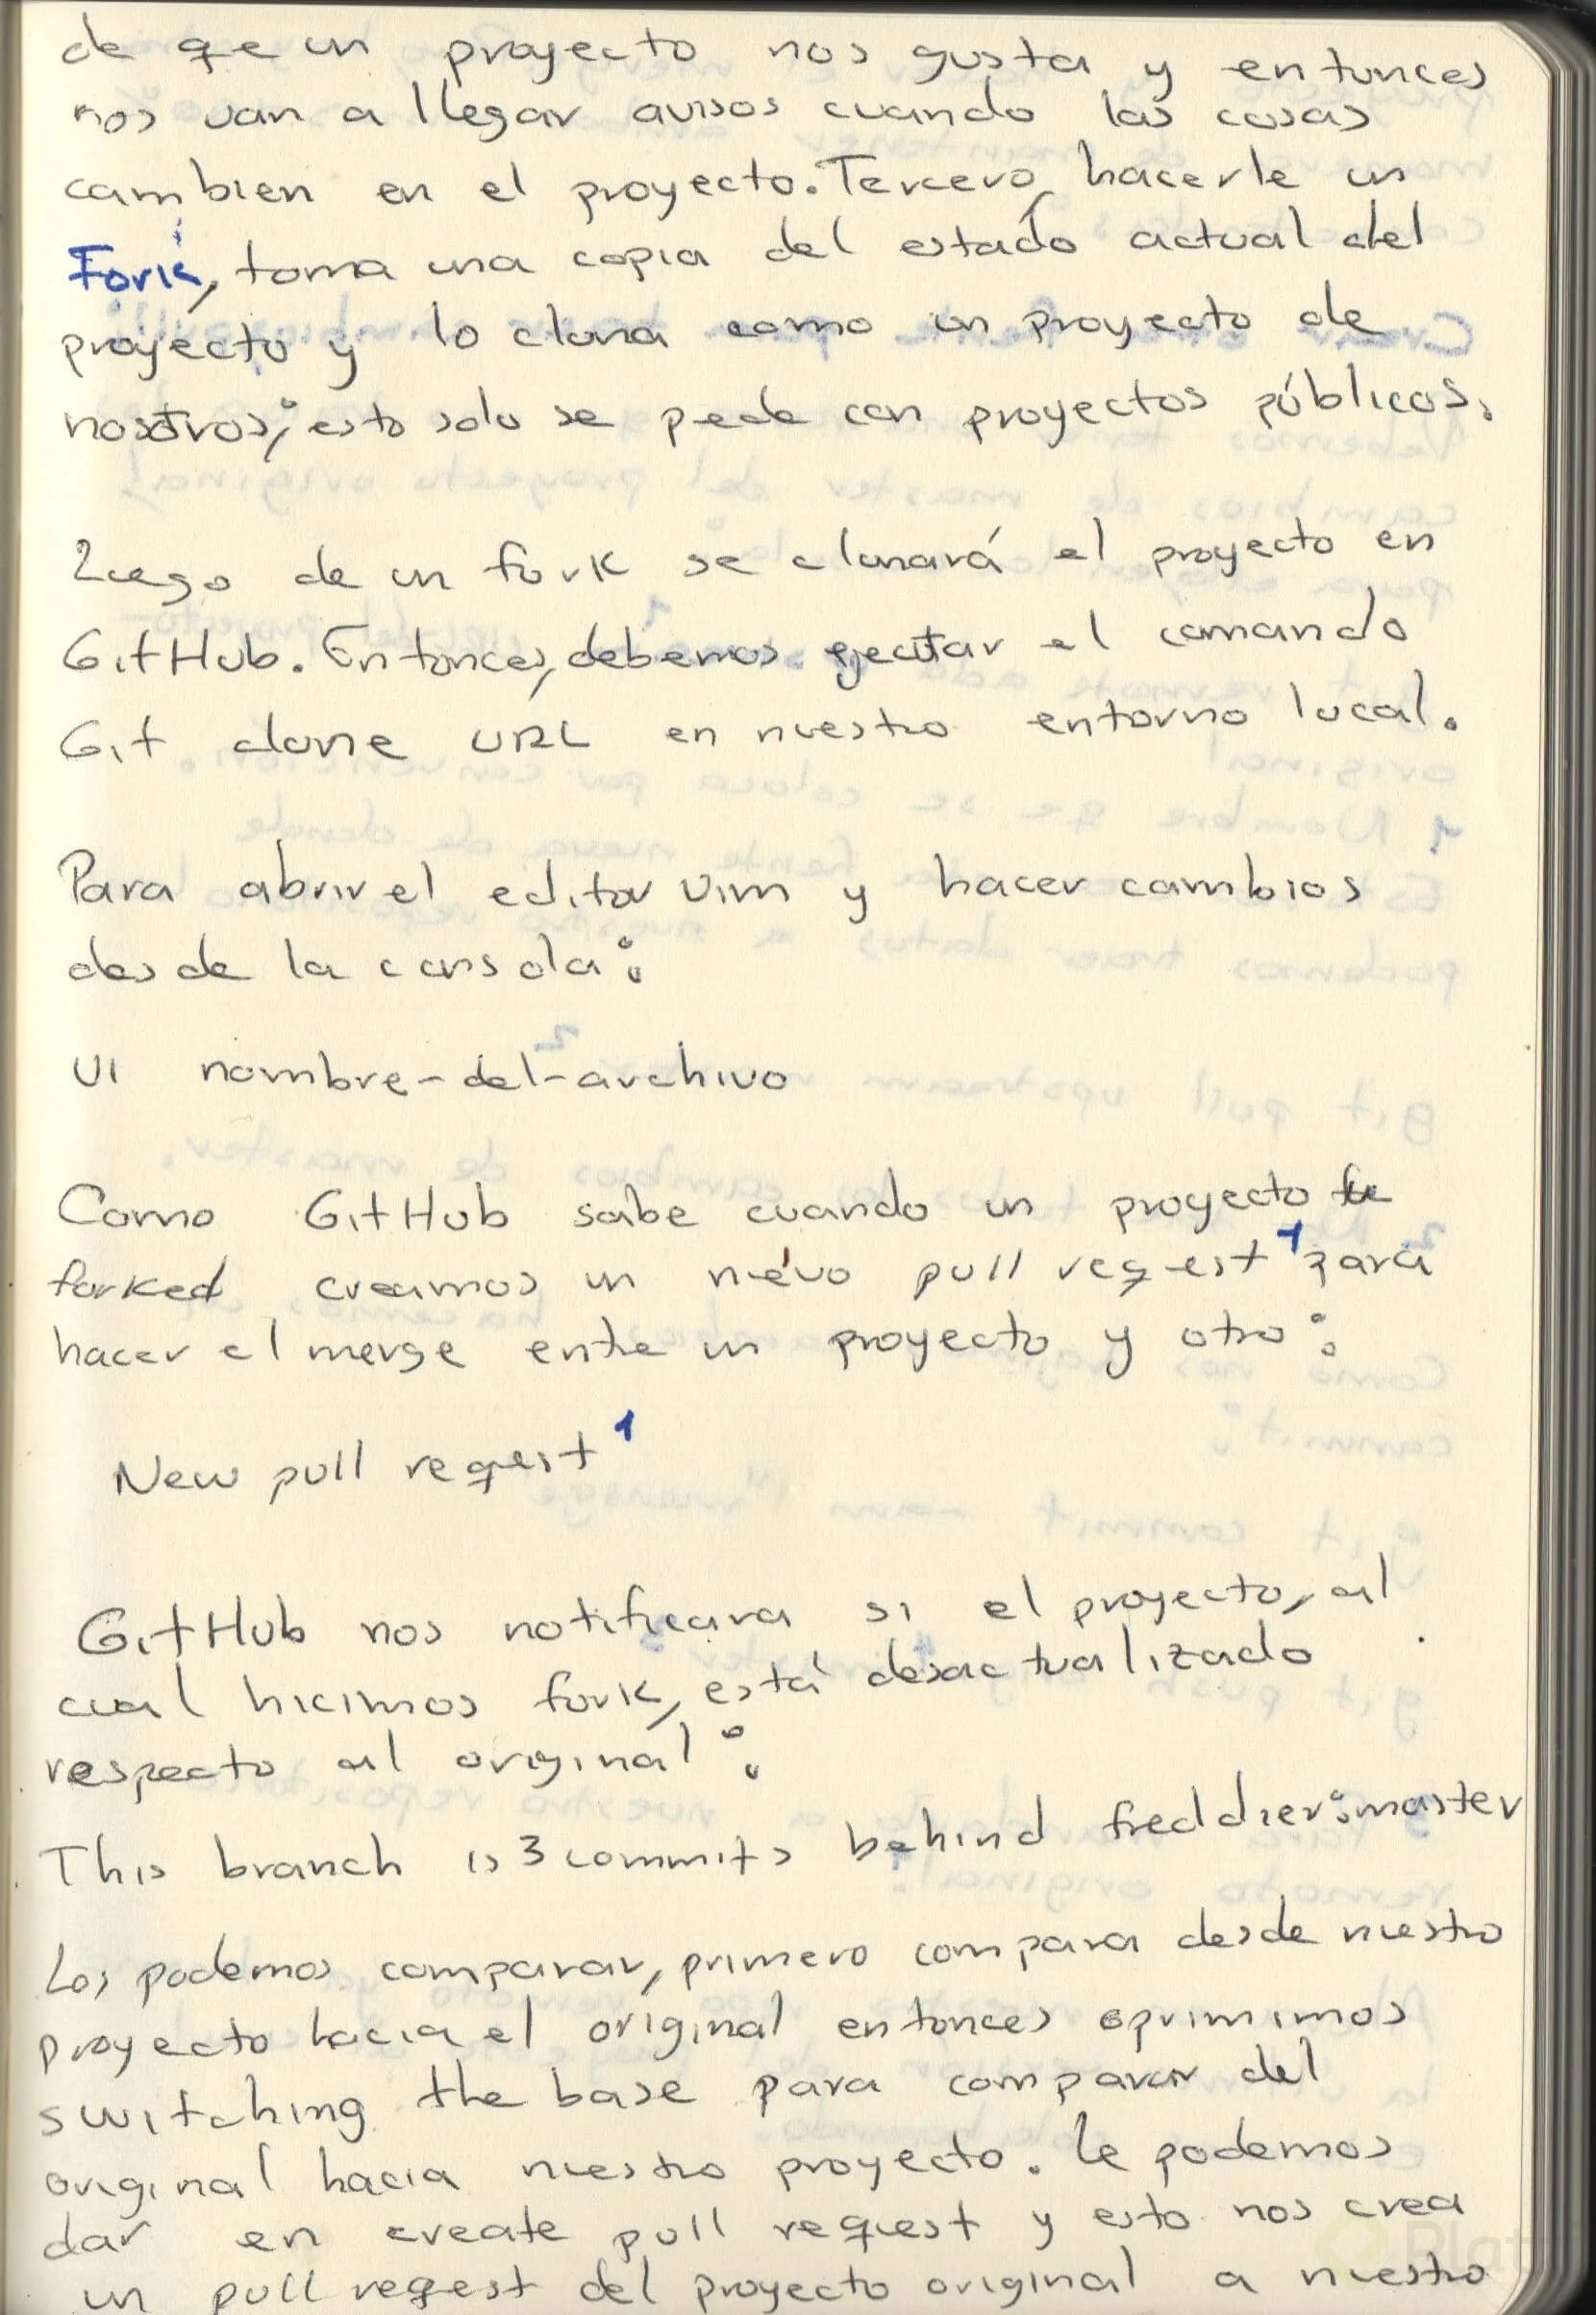 de que un proyecto nos gusta y entonces
nos van a llegar avisos cuando las cosas
cambien en el proyecto. Tercero, hacerle un
Fork, toma una copia del estado actual del
proyecto y lo clona como un proyecto de
nosotros; esto solo se puede con proyectos públicos.
Luego de un fork se clonará el proyecto en
GitHub. Entonces, debemos ejecutar el comando
Git clone URL en nuestro entorno local.
Para abrir el editor Vim y hacer cambios
desde la consola:
vi nombre-del-archivo
Como GitHub sabe cuando un proyecto fue
forked creamos un nuevo pull request 1 para
hacer el merge entre un proyecto y otro:
New pull request 1
GitHub nos notificara si el proyecto, al
cual hicimos fork, está desactualizado
respecto al original:
This branch is 3 commits behind freddier:master
Los podemos comparar, primero compara desde nuestro
proyecto hacia el original entonces oprimimos
switching the base para comparar del
original hacia nuestro proyecto. Le podemos
dar en create pull request y esto nos crea
un pull request del proyecto original a nuestro